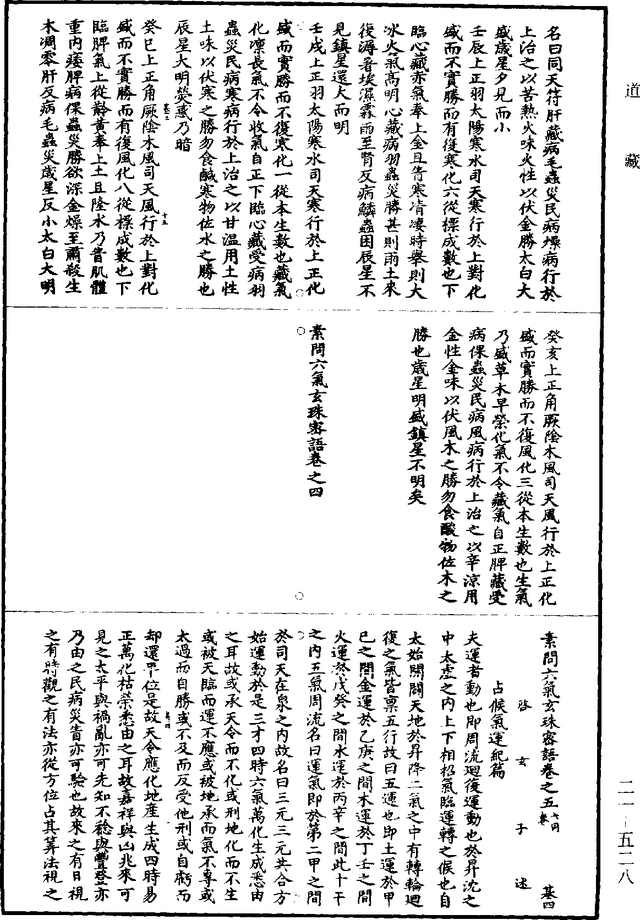 道藏
名曰同天符肝藏病毛蟲災民病燥病行於
上治之以苦熱火味火性以伏金勝太白大
盛歲星夕見而小
壬辰上正羽太陽寒水司天寒行於上對化
盛而不實勝而有復寒化六從標成數也下
臨心藏赤氣奉上金且眚寒凊凄時舉則大
冰火氣高明心藏病羽蟲災勝甚則雨土來
復溽暑埃濕霖雨至腎反病鱗蟲困辰星不
見鎮星還大而明
壬戌上正羽太陽寒水司天寒行於上正化
盛而實勝而不復寒化一從本生數也藏氣
化凜長氣不令收氣自正下臨心藏受病羽
蟲災民病寒病行於上治之以甘溫用土性
土味以伏寒之勝勿食鹹寒物佐水之勝也
辰星大明熒惑乃暗
癸巳上正角厥陰木風司天風行於上對化
盛而不實勝而有復風化八從標成數也下
臨脾氣上從黅黃奉上土且隆水乃眚肌體
重內痿脾病倮蟲災勝欲深金燥至肅殺生
木凋零肝反病毛蟲災歲星反小太白大明
癸亥上正角厥陰木風司天風行於上正化
盛而實勝而不復風化三從本生數也生氣
乃盛草木早榮化氣不令藏氣自正脾藏受
病倮蟲災民病風病行於上治之以辛涼用
金性金味以伏風木之勝勿食酸物佐木之
勝也歲星明盛鎮星不明矣
素問六氣玄珠密語卷之四
素問六氣玄珠密語卷之五 基四
啓玄子述
占候氣運紀篇
夫運者動也即周流迴復運動也於昇沈之
中太虛之內上下相招氣臨運轉之候也自
太始開闢天地於昇降二氣之中有轉輪迴
復之氣皆稟五行故曰五運也即土運於甲
己之間金運於乙庚之間木運於丁壬之間
火運於戊癸之間水運於丙辛之間此十干
之內五氣周流名曰運氣即於第二甲之間
於司天在泉之內故名曰三元三元共合方
始運動於是三才四時六氣萬化生成悉由
之耳故或承天令而不化或刑地化而不生
或被天臨而運不應或被地承而氣不專或
太過而自勝或不及而反受他刑或自虧而
却還平位是故天令應化地產生成四時易
正萬化枯榮悉由之耳故嘉祥與凶兆來可
見之太平與禍亂亦可先知不稔與豐登亦
乃由之民病災眚亦可驗也故來之有日視
之有時觀之有法亦從方位占其算法視之
二一—五二八